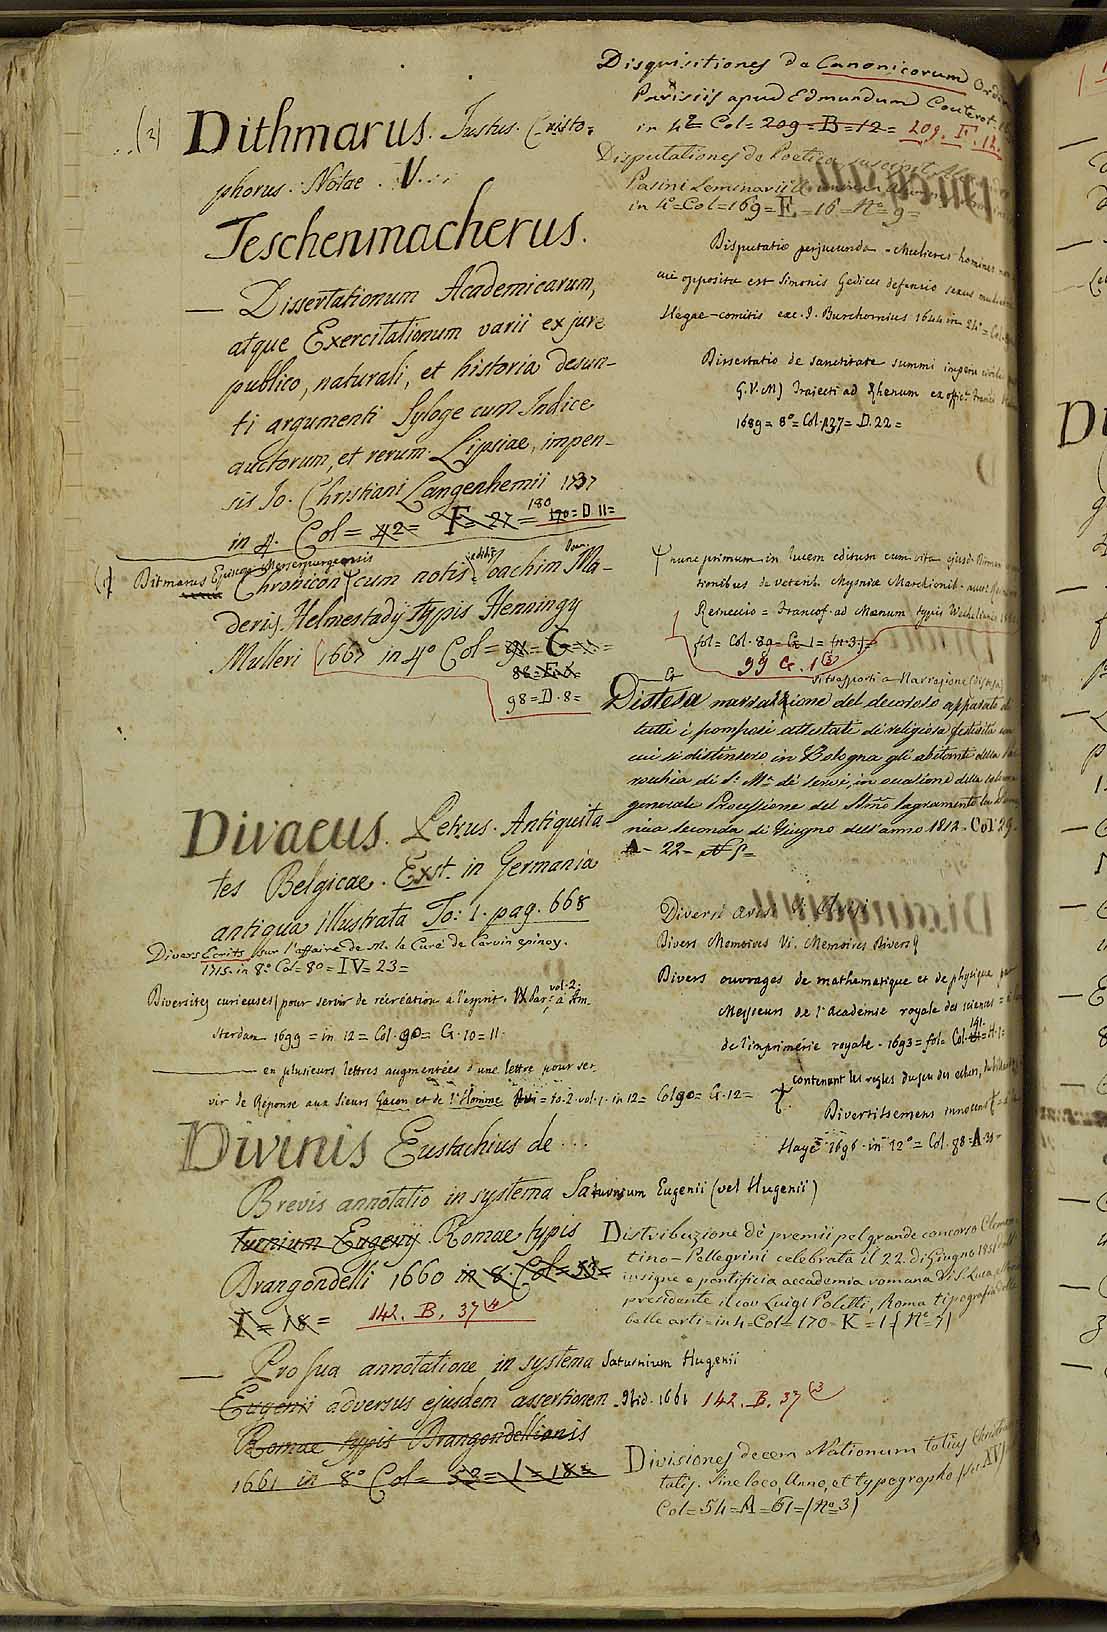 (2) Dithmarus. Justus. Cristo-
phorus. Notae. V...
Teschenmacherus.
— Dissertationum Academicarum,
atque Exercitationum varii ex jure
publico, naturali, et historia desun-
ti argumenti Syloge cum Indice
auctorum, et rerum. Lipsiae, impen-
sis Jo. Christiani Langenhemii 1737
in 4. Col = 42 = F = 27 = 180 = D 11 =
Ditmarus Episcop. Merserpurgensis
Chronicon cum notis Joachim Ma-
derij Helmestadij typis Henningy
Mulleri 1667 in 4º Col =
88 = E.
98 = D. 8 =
Divaeus. Petrus. Antiquita
tes Belgicae. Exst. in Germania
antiqua illustrata To: 1. pag. 668
Divers Ecrits sur l'affaire de M. le Curé de Carvin epinoy.
1715. in 8º Col = 80 = IV = 23 =
Diversitez curieuses pour servir de récréation a l'esprit. vol. 2. a Am.
sterdam 1699 = in 12 = Col. 90 = G. 10 = 11.
en plusieurs lettres augmentées d'une lettre pour ser.
vir de Réponse aux Sieurs Gacon et de l'Homme = to. 2. vol. 1. in 12 = Col 90 = G. 12 =
Divinis Eustachius de ...
Brevis annotatio in systema Saturnium Eugenii (vel Hugenii)
turnium Eugenij Romae typis
Drangondelli 1660 in 8. Col = 53 =
I = 18 = 142. B. 37
— Pro sua annotatione in systema Saturnium Hugenii
Eugenii adversus ejusdem assertionem Ibid. 1661 142. B. 37
Romae typis Drangondellianis
1661 in 8º Col = 52 = I = 18 =
Disquisitiones de Canonicorum Ordin
Parisiis apud Edmundum Couterot
in 4º Col = 209 = B = 12 = 209. F. 12.
Disputationes de Poetica
in 4º = Col = 169 = E = 16 = Nº = 9 =
Disputatio perjucunda - Mulieres homines non
cui opposita est Simonis Gedicci defensio sexus
Hagae-comitis exc. I. Burchornius 1644 in 24º = Col
Dissertatio de sanctitate summi imperii civilis
G. V. M) Trajecti ad Rhenum ex offic.
1689 = 8º = Col. 137 = D. 22 =
nunc primum in lucem editum cum vita ejusd.
tionibus de veterib. Mysniae Marchionib.
Reineccio = Francof. ad Moenum typis Wechelianis
fol = Col. 89 = G. 1 = (n. 3.) =
99 G. 1
si trasporti a Narrazione (Distesa)
Distesa narrazione del decoroso apparato di
tutti i pomposi attestati di religiosa festività con
cui si distinsero in Bologna gli abitanti della
rochia di S. Mª de servi, in occasione della
generale Processione del Smo Sagramento la
nica seconda di Giugno dell'anno 1812. Col 29.
A - 22 -
Diversi avisi Vi. Avisi
Divers Memoires Vi. Memoires Divers
Divers ouvrages de mathematique et de physique par
Messieurs de l'Académie royale des sciences =
de l'imprimerie royale. 1693 = fol. Col. 191 = H. 1 =
contenant les regles du jeu des echecs, du billard
Divertissemens innocens
Haye 1696 in 12º = Col. 98 = A. 39 =
Distribuzione de premii pel grande concorso Clemen
tino - Pellegrini celebrata il 22. di Giugno 1851
insigne e pontificia accademia romana di S. Luca
presidente il cav Luigi Poletti, Roma tipografia
belle arti = in 4 = Col = 170 = K = 1 = (Nº = 5)
Divisiones decem Nationum totius Christiani
tatis. Sine loco, Anno, et typographo (Sec XV)
Col = 54 = A = 61 = (Nº = 3)